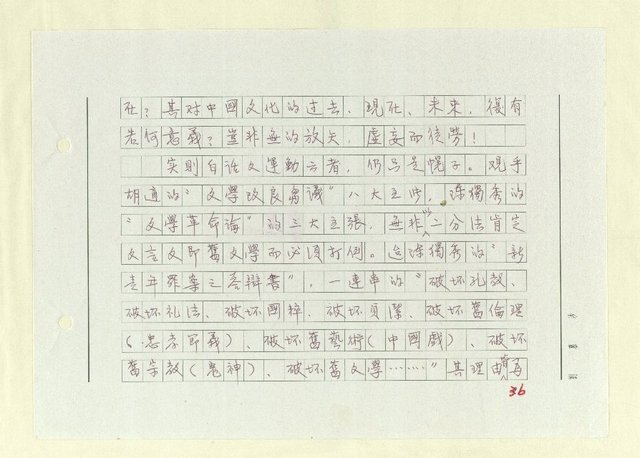 在？其对中國文化的过去、現在、未來，復有
若何意義？豈非無的放矢，虛妄而徒勞！
实則白话文運動云者，仍只是幌子。观乎
胡適的“文學改良芻議”八大主涉，陈獨秀的
“文學革命論”的三大主張，無非以二分法肯定
文言文即舊文學而必須打倒。迨陈獨秀的“新
青年罪案之荅辯書”，一連串的“破坏孔教、
破坏礼法、破坏國粹、破坏贞潔、破坏舊倫理
(忠孝節義)、破坏舊藝術(中國戲)、破坏
舊宗教(鬼神)、破坏舊文學……”其理由再
36